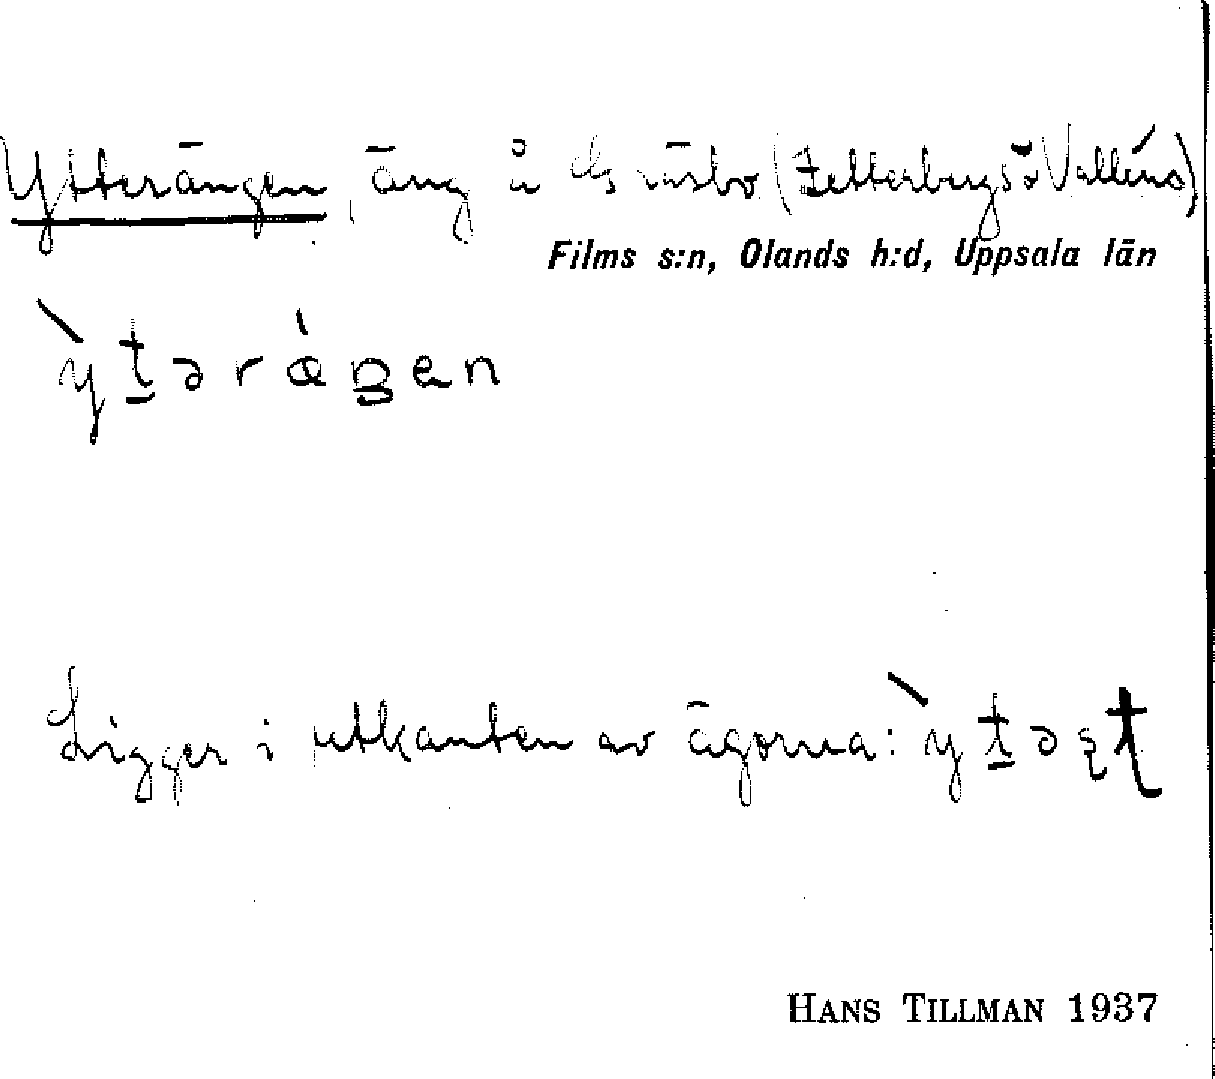 Ytterängen, äng å Gräsbo (Zetterbergs o Valléns)
Films s:n, Olands h:d, Uppsala län
ỳt̲ərǽŋen
Ligger i utkanten av ägorna: ỳt̲əʂʈ
HANS TILLMAN 1937